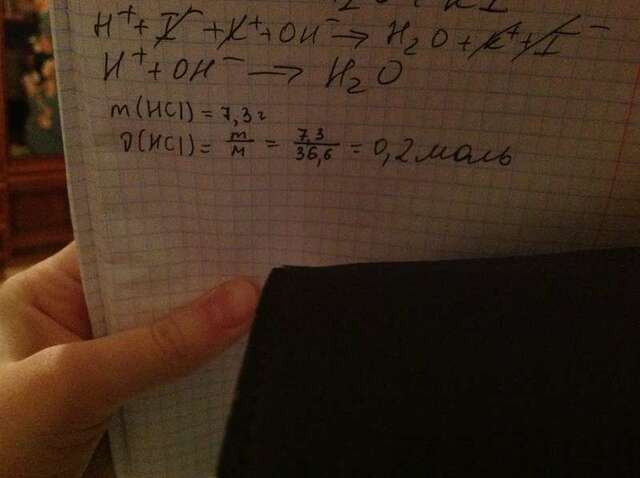 H⁺ + I⁻ + K⁺ + OH⁻ → H₂O + K⁺ + I⁻
H⁺ + OH⁻ → H₂O
m(HCl) = 7,3г
ν(HCl) = m/M = 7,3/36,6 = 0,2 моль